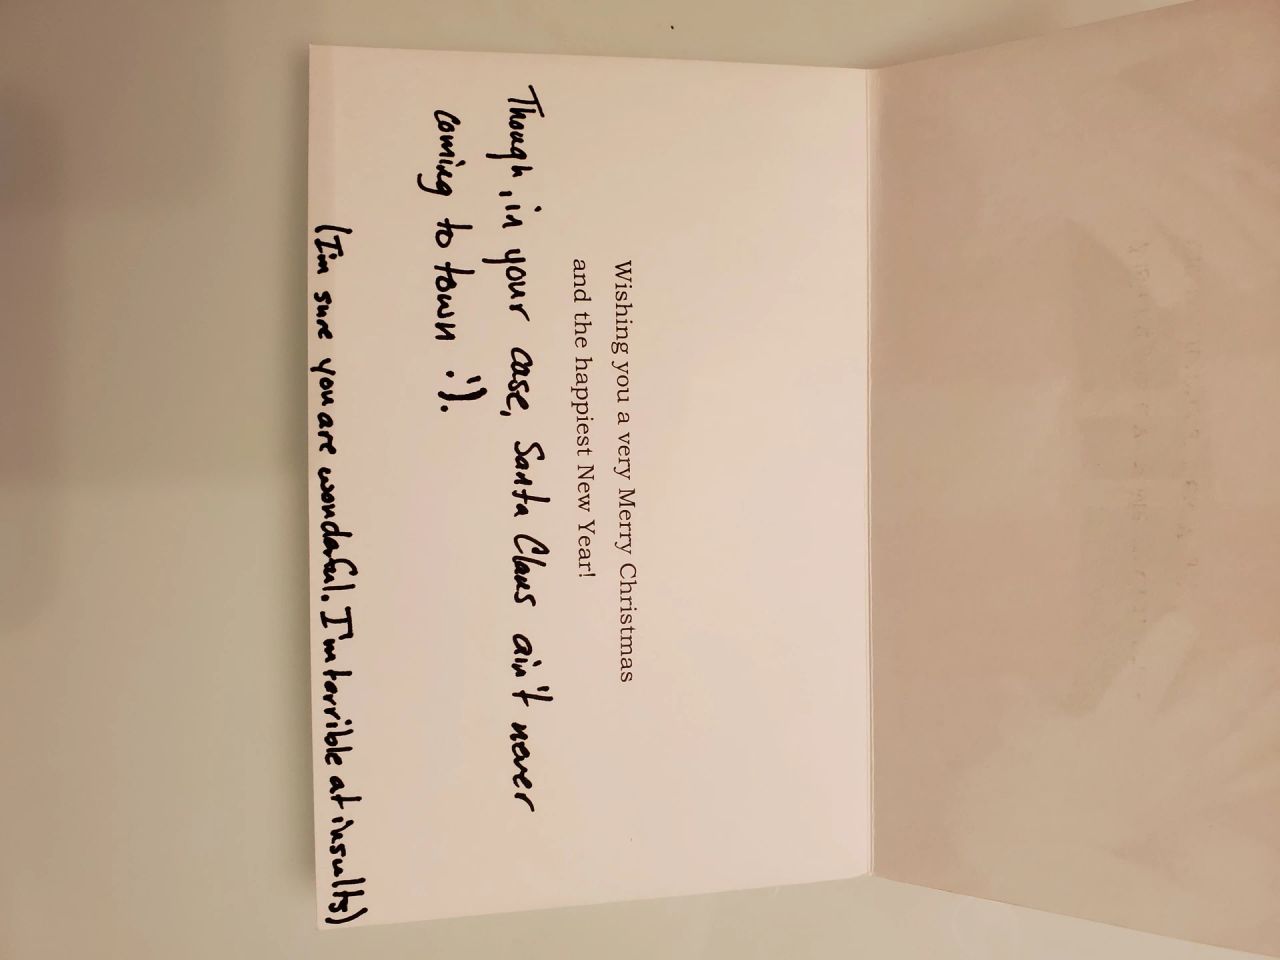 Wishing you a very Merry Christmas
and the happiest New Year!
Though, in your case, Santa Claus ain't never
coming to town :').
(I'm sure you are wonderful. I'm terrible at insults)